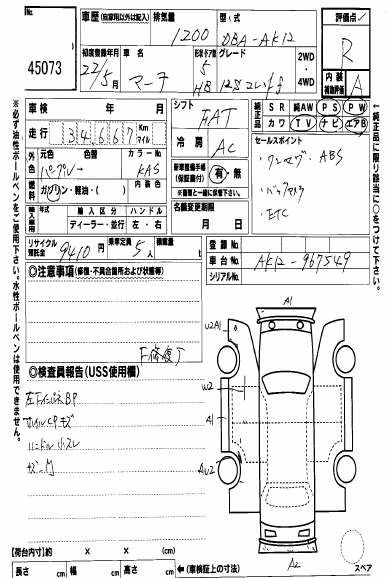 No.
45073
車歴(自家用以外は記入)
排気量
1200
型式
DBA-AK12
評価点
R
初度登録年月
22/5月
車名
マーチ
形状・ドア数
5
HB
グレード
12S コレット
2WD
・
4WD
内装
補助評価
A
※必ず油性ボールペンをご使用下さい。水性ボールペンは使用できません。
車検 年 月
シフト
FAT
純正品
SR 純AW PS PW
カワ TV ナビ エアB
↑純正品に限り該当に○をつけて下さい。
走行
34667
Km
マイル
冷房
AC
セールスポイント
・ワンセグ・ABS
・バックカメラ
・ETC
外色
元色 色替 カラーNo.
パープル→
KAS
燃料
ガソリン・軽油・( )
内装色
新車整備手帳
(保証書付)
有・無
※書類と一緒に保管下さい。
輸入車用
年式 輸入区分 ハンドル
ディーラー・並行 左・右
名義変更期限
月 日
リサイクル
預託金
9410円
乗車定員
5人
積載量
t
登録No.
車台No.
AK12-967549
シリアルNo.
◎注意事項(修復・不具合箇所および状態等)
F修復了
◎検査員報告(USS使用欄)
BP
ハンドル小スレ
A1
U2A1
U2
A1
AU2
A2
スペア
【荷台内寸】 x x (cm)
長さ cm 幅 cm 高さ cm
(車検証上の寸法)